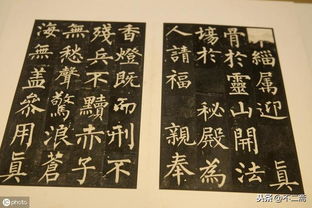 不緇屬迎 真
骨於靈山開法
場於 秘殿為
人請福 親奉
香燈既而刑不
殘兵不黷赤子
無愁聲驚浪蒼
海無盖參用真
photo
头条@不二斋